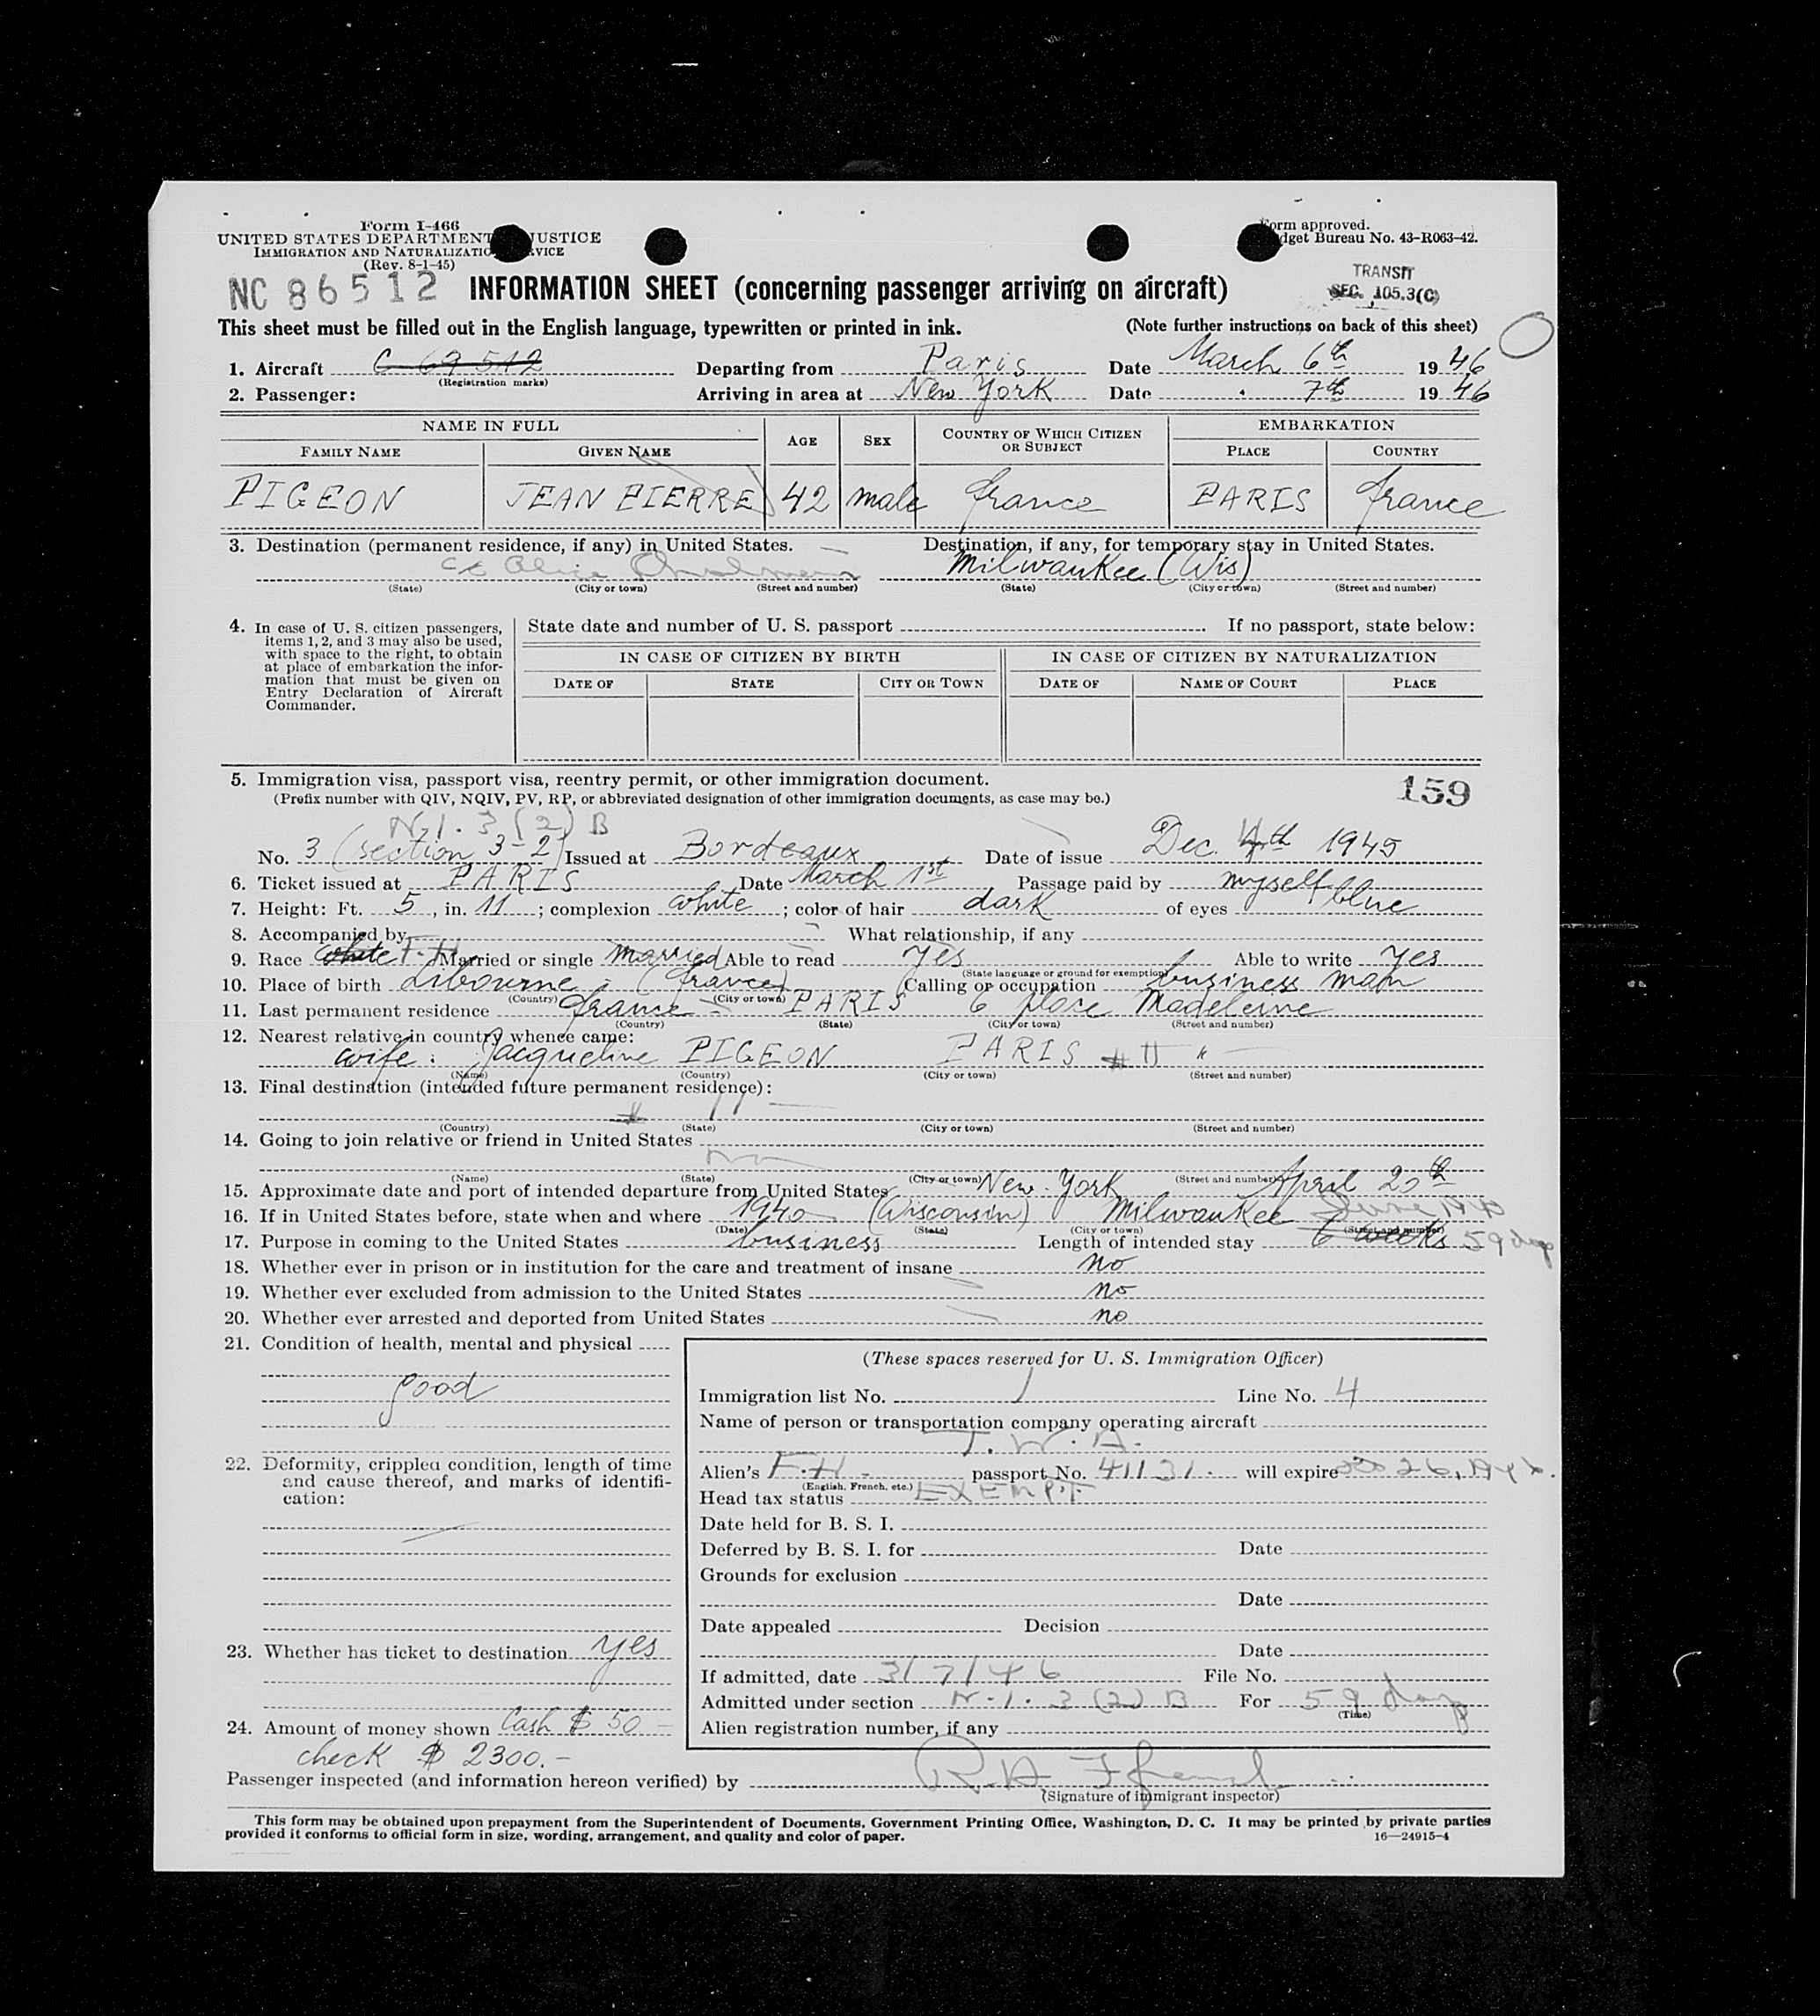 Form I-466
UNITED STATES DEPARTMENT JUSTICE
IMMIGRATION AND NATURALIZATIO RVICE
(Rev. 8-1-45)
Form approved.
dget Bureau No. 43-R063-42.
NC 86512 INFORMATION SHEET (concerning passenger arriving on aircraft)
TRANSIT
SEC. 105.3(C)
This sheet must be filled out in the English language, typewritten or printed in ink. (Note further instructions on back of this sheet)
1. Aircraft C 69 512 Departing from Paris Date March 6th 1946
(Registration marks)
2. Passenger: Arriving in area at New York Date 7th 1946
NAME IN FULL AGE SEX COUNTRY OF WHICH CITIZEN OR SUBJECT EMBARKATION
FAMILY NAME GIVEN NAME PLACE COUNTRY
PIGEON JEAN PIERRE 42 male france PARIS france
3. Destination (permanent residence, if any) in United States. Destination, if any, for temporary stay in United States.
Milwaukee (Wis)
(State) (City or town) (Street and number) (State) (City or town) (Street and number)
4. In case of U. S. citizen passengers,
items 1, 2, and 3 may also be used,
with space to the right, to obtain
at place of embarkation the infor-
mation that must be given on
Entry Declaration of Aircraft
Commander.
State date and number of U. S. passport If no passport, state below:
IN CASE OF CITIZEN BY BIRTH IN CASE OF CITIZEN BY NATURALIZATION
DATE OF STATE CITY OR TOWN DATE OF NAME OF COURT PLACE
5. Immigration visa, passport visa, reentry permit, or other immigration document.
159
(Prefix number with QIV, NQIV, PV, RP, or abbreviated designation of other immigration documents, as case may be.)
N.I. 3 (2) B
No. 3 (section 3-2) Issued at Bordeaux Date of issue Dec. 4th 1945
6. Ticket issued at PARIS Date March 1st Passage paid by myself
7. Height: Ft. 5, in. 11; complexion white; color of hair dark of eyes blue
8. Accompanied by What relationship, if any
9. Race white F.H Married or single married Able to read Yes Able to write Yes
(State language or ground for exemption)
10. Place of birth Libourne (france) Calling or occupation business man
(Country) (City or town)
11. Last permanent residence france - PARIS 6 place Madeleine
(Country) (State) (City or town) (Street and number)
12. Nearest relative in country whence came:
wife: Jacqueline PIGEON PARIS
(Name) (Country) (City or town) (Street and number)
13. Final destination (intended future permanent residence):
(Country) (State) (City or town) (Street and number)
14. Going to join relative or friend in United States
(Name) (State) (City or town) (Street and number)
15. Approximate date and port of intended departure from United States New-York April 20th
16. If in United States before, state when and where 1940 (Wisconsin) Milwaukee
(Date) (State) (City or town) (Street and number)
17. Purpose in coming to the United States business Length of intended stay 6 weeks 59 days
18. Whether ever in prison or in institution for the care and treatment of insane no
19. Whether ever excluded from admission to the United States no
20. Whether ever arrested and deported from United States no
21. Condition of health, mental and physical
good
22. Deformity, crippled condition, length of time
and cause thereof, and marks of identifi-
cation:
23. Whether has ticket to destination yes
24. Amount of money shown Cash $ 50 -
check $ 2300.-
(These spaces reserved for U. S. Immigration Officer)
Immigration list No. 1 Line No. 4
Name of person or transportation company operating aircraft
T. W. A.
Alien's F.H. passport No. 41131. will expire
(English, French, etc.)
Head tax status EXEMPT
Date held for B. S. I.
Deferred by B. S. I. for Date
Grounds for exclusion
Date
Date appealed Decision
Date
If admitted, date 3/7/46 File No.
Admitted under section N.I. 3 (2) B For 59 days
(Time)
Alien registration number, if any
Passenger inspected (and information hereon verified) by
(Signature of immigrant inspector)
This form may be obtained upon prepayment from the Superintendent of Documents, Government Printing Office, Washington, D. C. It may be printed by private parties
provided it conforms to official form in size, wording, arrangement, and quality and color of paper. 16—24915-4